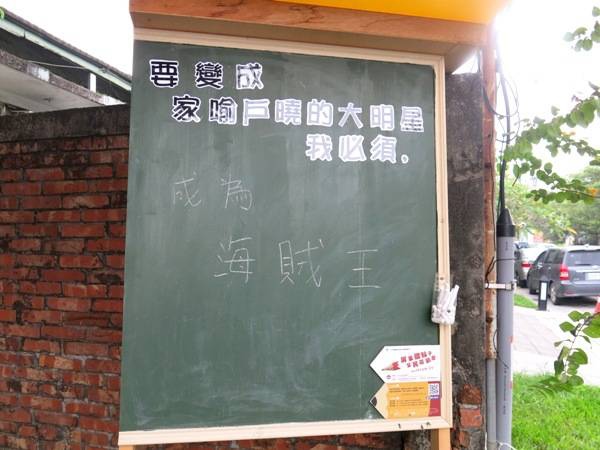 要變成
家喻戶曉的大明星
我必須,
成為
海賊王